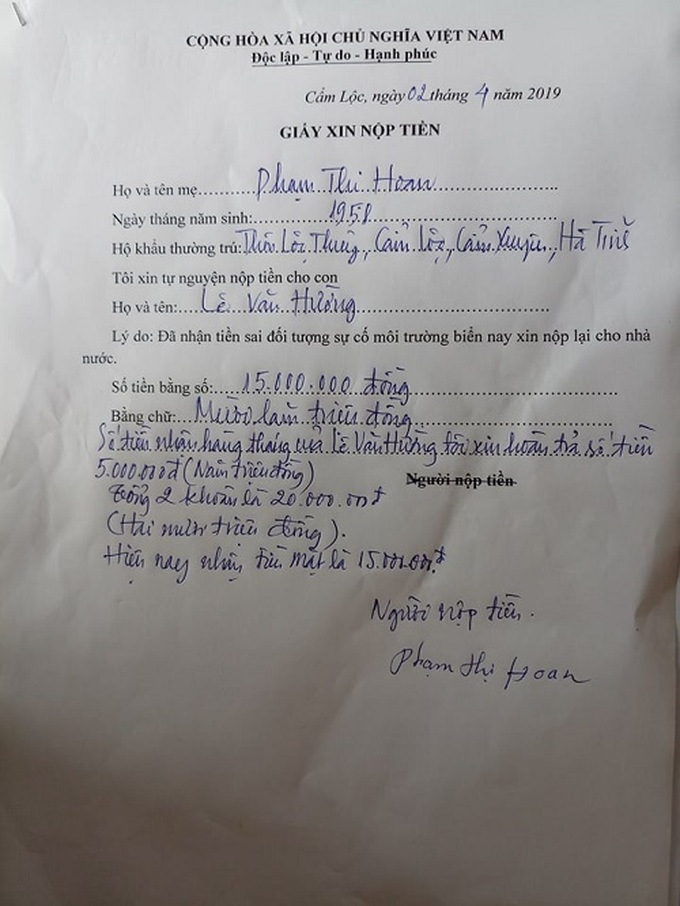 CỘNG HÒA XÃ HỘI CHỦ NGHĨA VIỆT NAM
Độc lập - Tự do - Hạnh phúc
Cẩm Lộc, ngày 02 tháng 4 năm 2019
GIẤY XIN NỘP TIỀN
Họ và tên mẹ: Phạm Thị Hoan
Ngày tháng năm sinh: 1958
Hộ khẩu thường trú: Thôn Lộc Thủy, Cẩm Lộc, Cẩm Xuyên, Hà Tĩnh
Tôi xin tự nguyện nộp tiền cho con
Họ và tên: Lê Văn Hường
Lý do: Đã nhận tiền sai đối tượng sự cố môi trường biển nay xin nộp lại cho nhà
nước.
Số tiền bằng số: 15.000.000 đồng
Bằng chữ: Mười lăm triệu đồng
Số tiền nhận hàng tháng của Lê Văn Hường tôi xin hoàn trả số tiền
5.000.000đ (Năm triệu đồng)
Người nộp tiền
Tổng 2 khoản là 20.000.000đ
(Hai mươi triệu đồng).
Hiện nay tiền mặt là 15.000.000đ
Người nộp tiền.
Phạm Thị Hoan